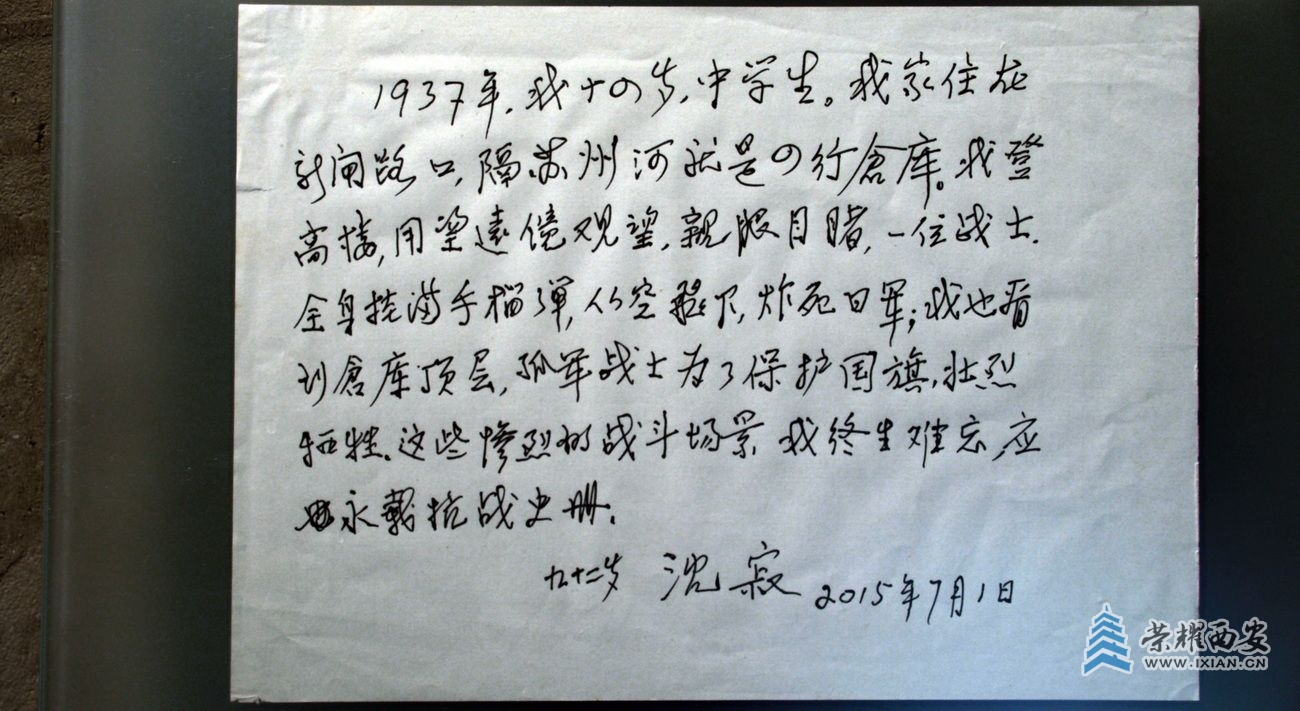 1937年，我十四岁，中学生。我家住在
新闸路口，隔苏州河就是四行倉库。我登
高楼，用望远镜观望，親眼目睹，一位战士，
全身挂满手榴弹，从空跳下，炸死日军；我也看
到倉库顶层，孤军战士为了保护国旗，壮烈
牺牲。这些惨烈的战斗场景，我终生难忘，应
永载抗战史册。
九十二岁 沈寂 2015年7月1日
荣耀西安
WWW.IXIAN.CN